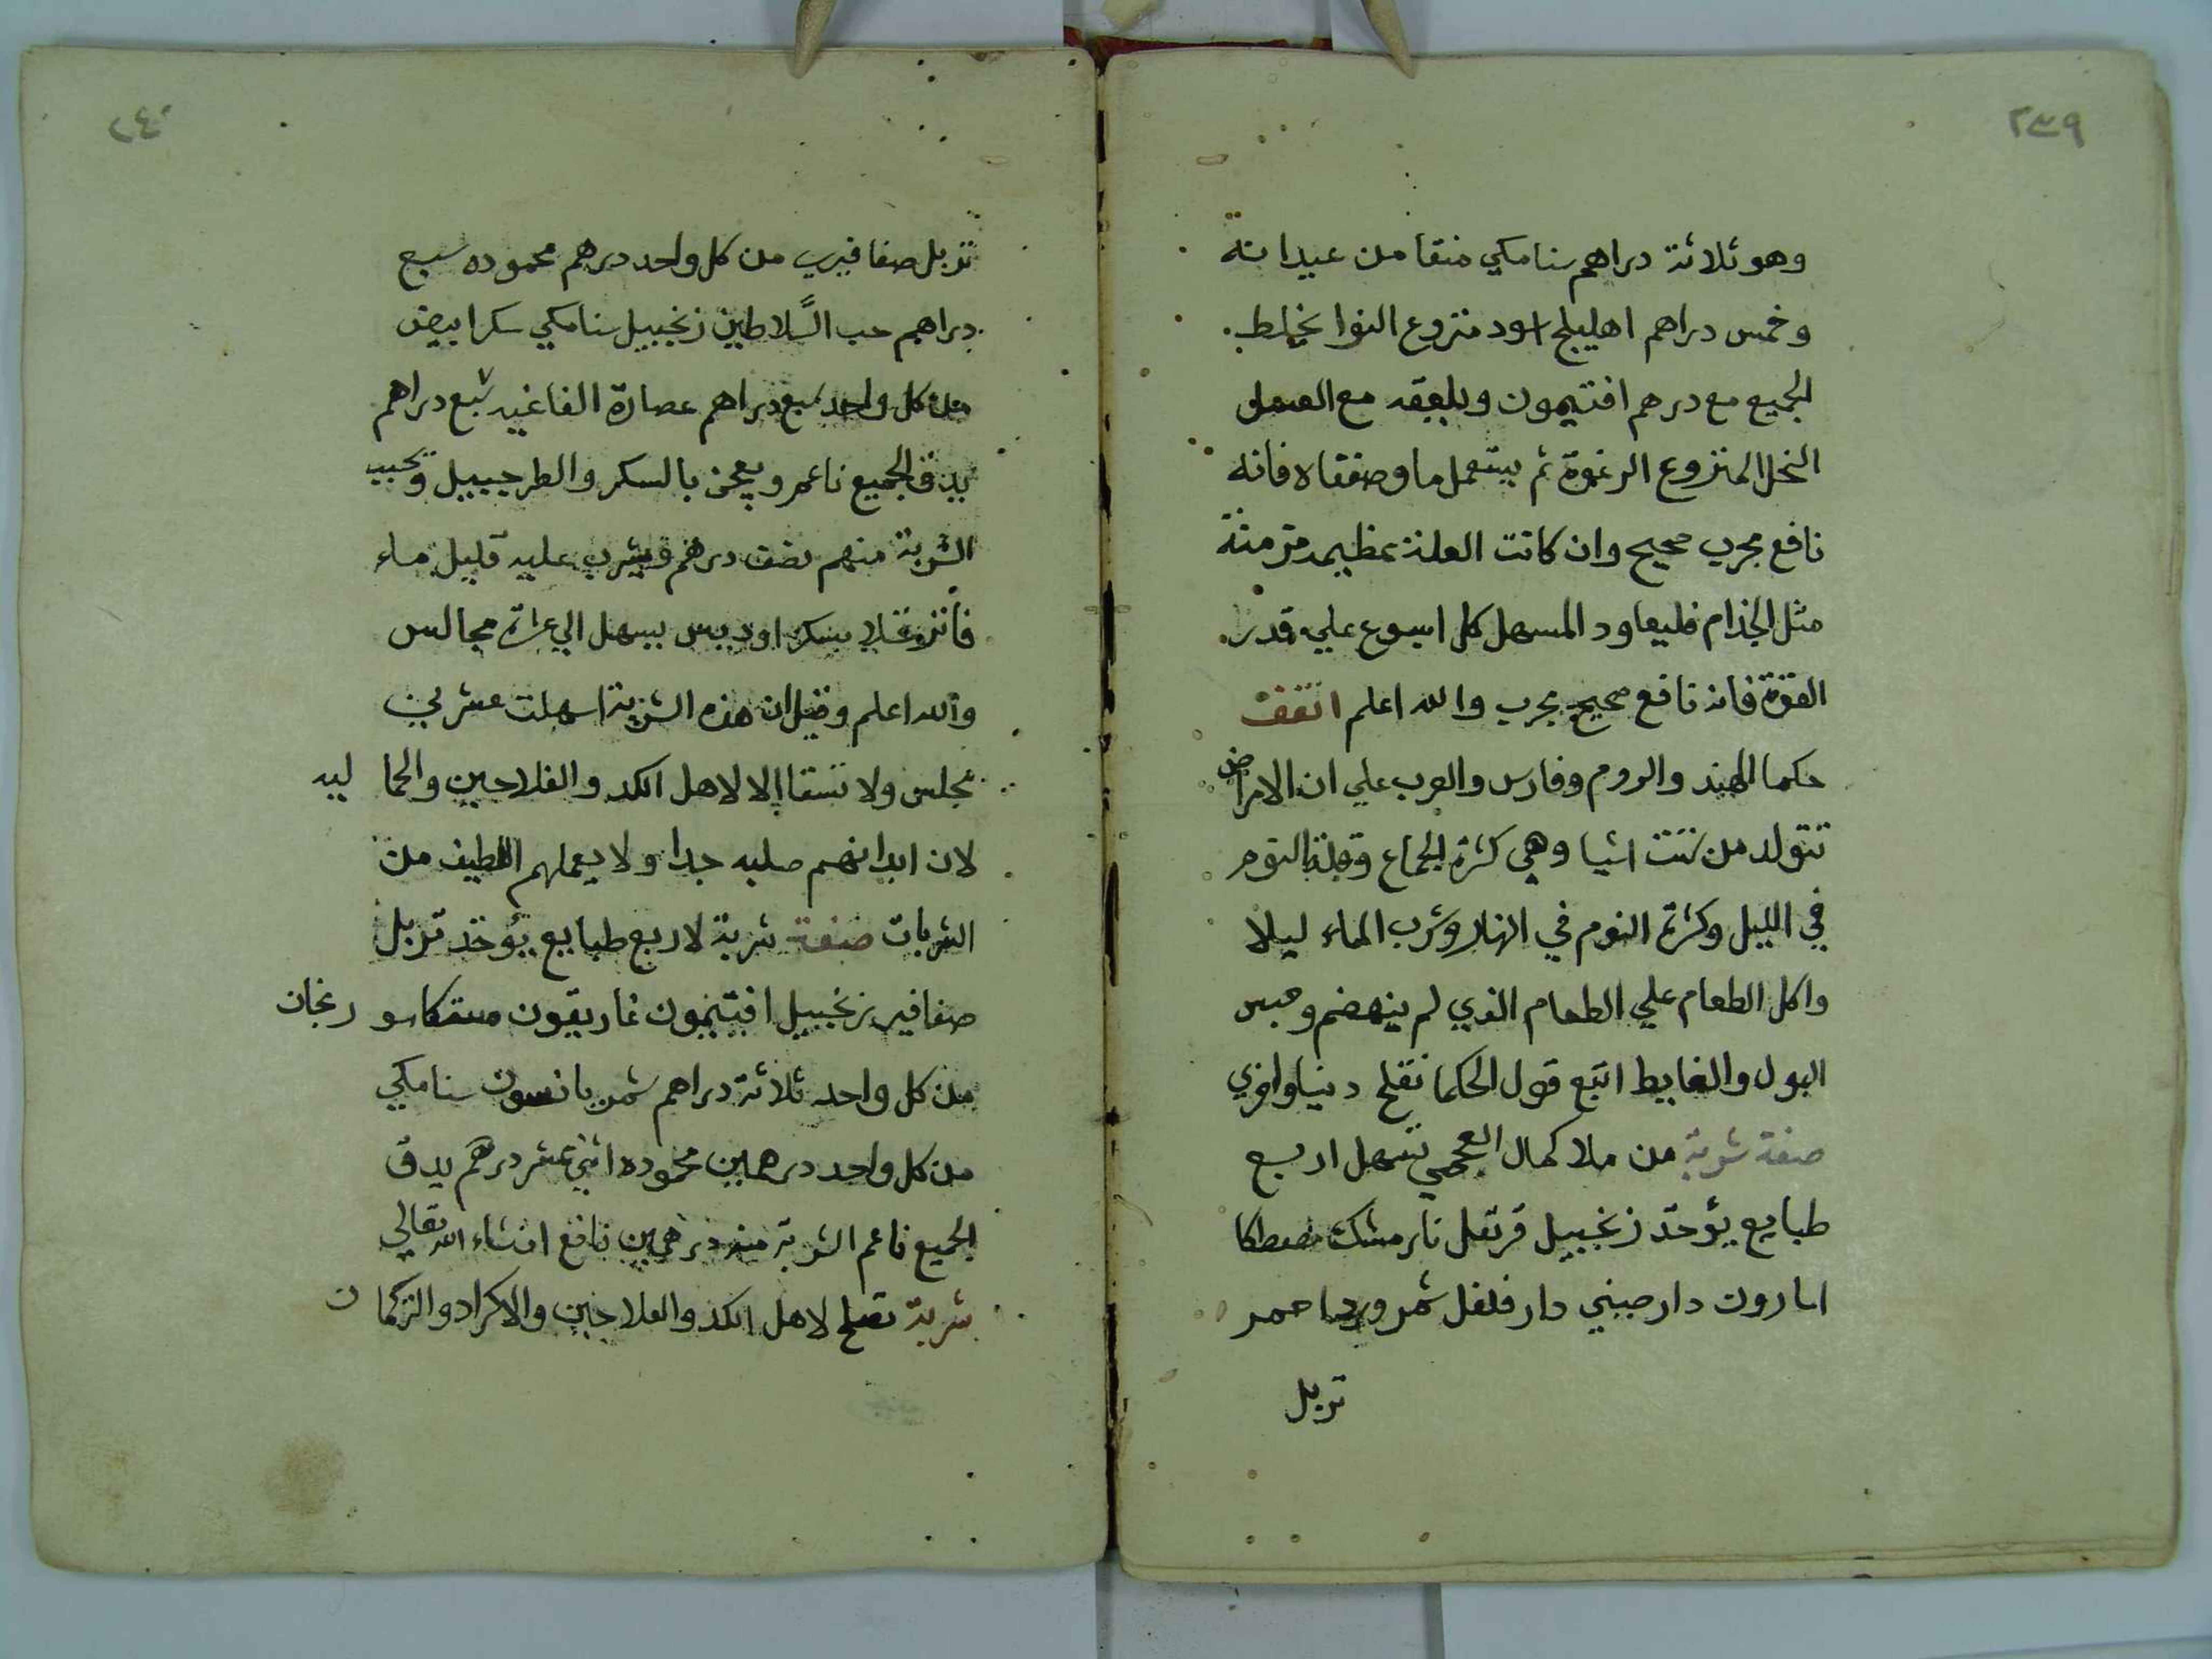 ٢٣٩
وهو ثلاثة دراهم سنامكي منقا من عيدانه
وخمس دراهم اهليلج اسود منزوع النوا يخلط
الجميع مع درهم افتيمون ويلعقه مع العسل
النحل المنزوع الرغوة ثم يستعمل ما وصفناه فانه
نافع مجرب صحيح وان كانت العلة عظيمه مزمنة
مثل الجذام فليعاود المسهل كل اسبوع علي قدر
القوة فانه نافع صحيح مجرب والله اعلم اتفقت
حكما الهند والروم وفارس والعرب علي ان الامراض
تتولد من ستت اشيا وهي كثرة الجماع وقلة النوم
في الليل وكثرة النوم في النهار وشرب الماء ليلا
واكل الطعام علي الطعام الذي لم ينهضم وحبس
البول والغايط اتبع قول الحكما تفلح دنيا واخري
صفة شربة من ملا كمال العجمي تسهل اربع
طبايع يؤخذ زنجبيل قرنفل نارمشك مصطكا
اسارون دارصيني دارفلفل شمر ورد احمر
تربل
٢٤٠
تربل صفافيري من كل واحد درهم محموده سبع
دراهم حب السلاطين زنجبيل سنامكي سكر ابيض
من كل واحد سبع دراهم عصارة الغاغيه سبع دراهم
يدق الجميع ناعم ويعجن بالسكر والطرجبيل ويحبب
الشربة منهم نصف درهم ويشرب عليه قليل ماء
فاتر مغلا بسكر او دبس يسهل الي عشرة مجالس
والله اعلم وقيل ان هذه الشربة اسهلت عشرين
مجلس ولا تسقا الا لاهل الكد والفلاحين والحما ليه
لان ابدانهم صلبه جدا ولا يعملهم اللطيف من
الشربات صفة شربة لاربع طبايع يؤخذ تربل
صفافير زنجبيل افتيمون غاريقون مستكا سو رنجان
من كل واحد ثلاثة دراهم شمر يانسون سنامكي
من كل واحد درهمين محموده اثني عشر درهم يدق
الجميع ناعم الشربة منه درهمين نافع انشاء الله تعالي
شربة تصلح لاهل الكد والفلاحين والاكراد والتركما ن